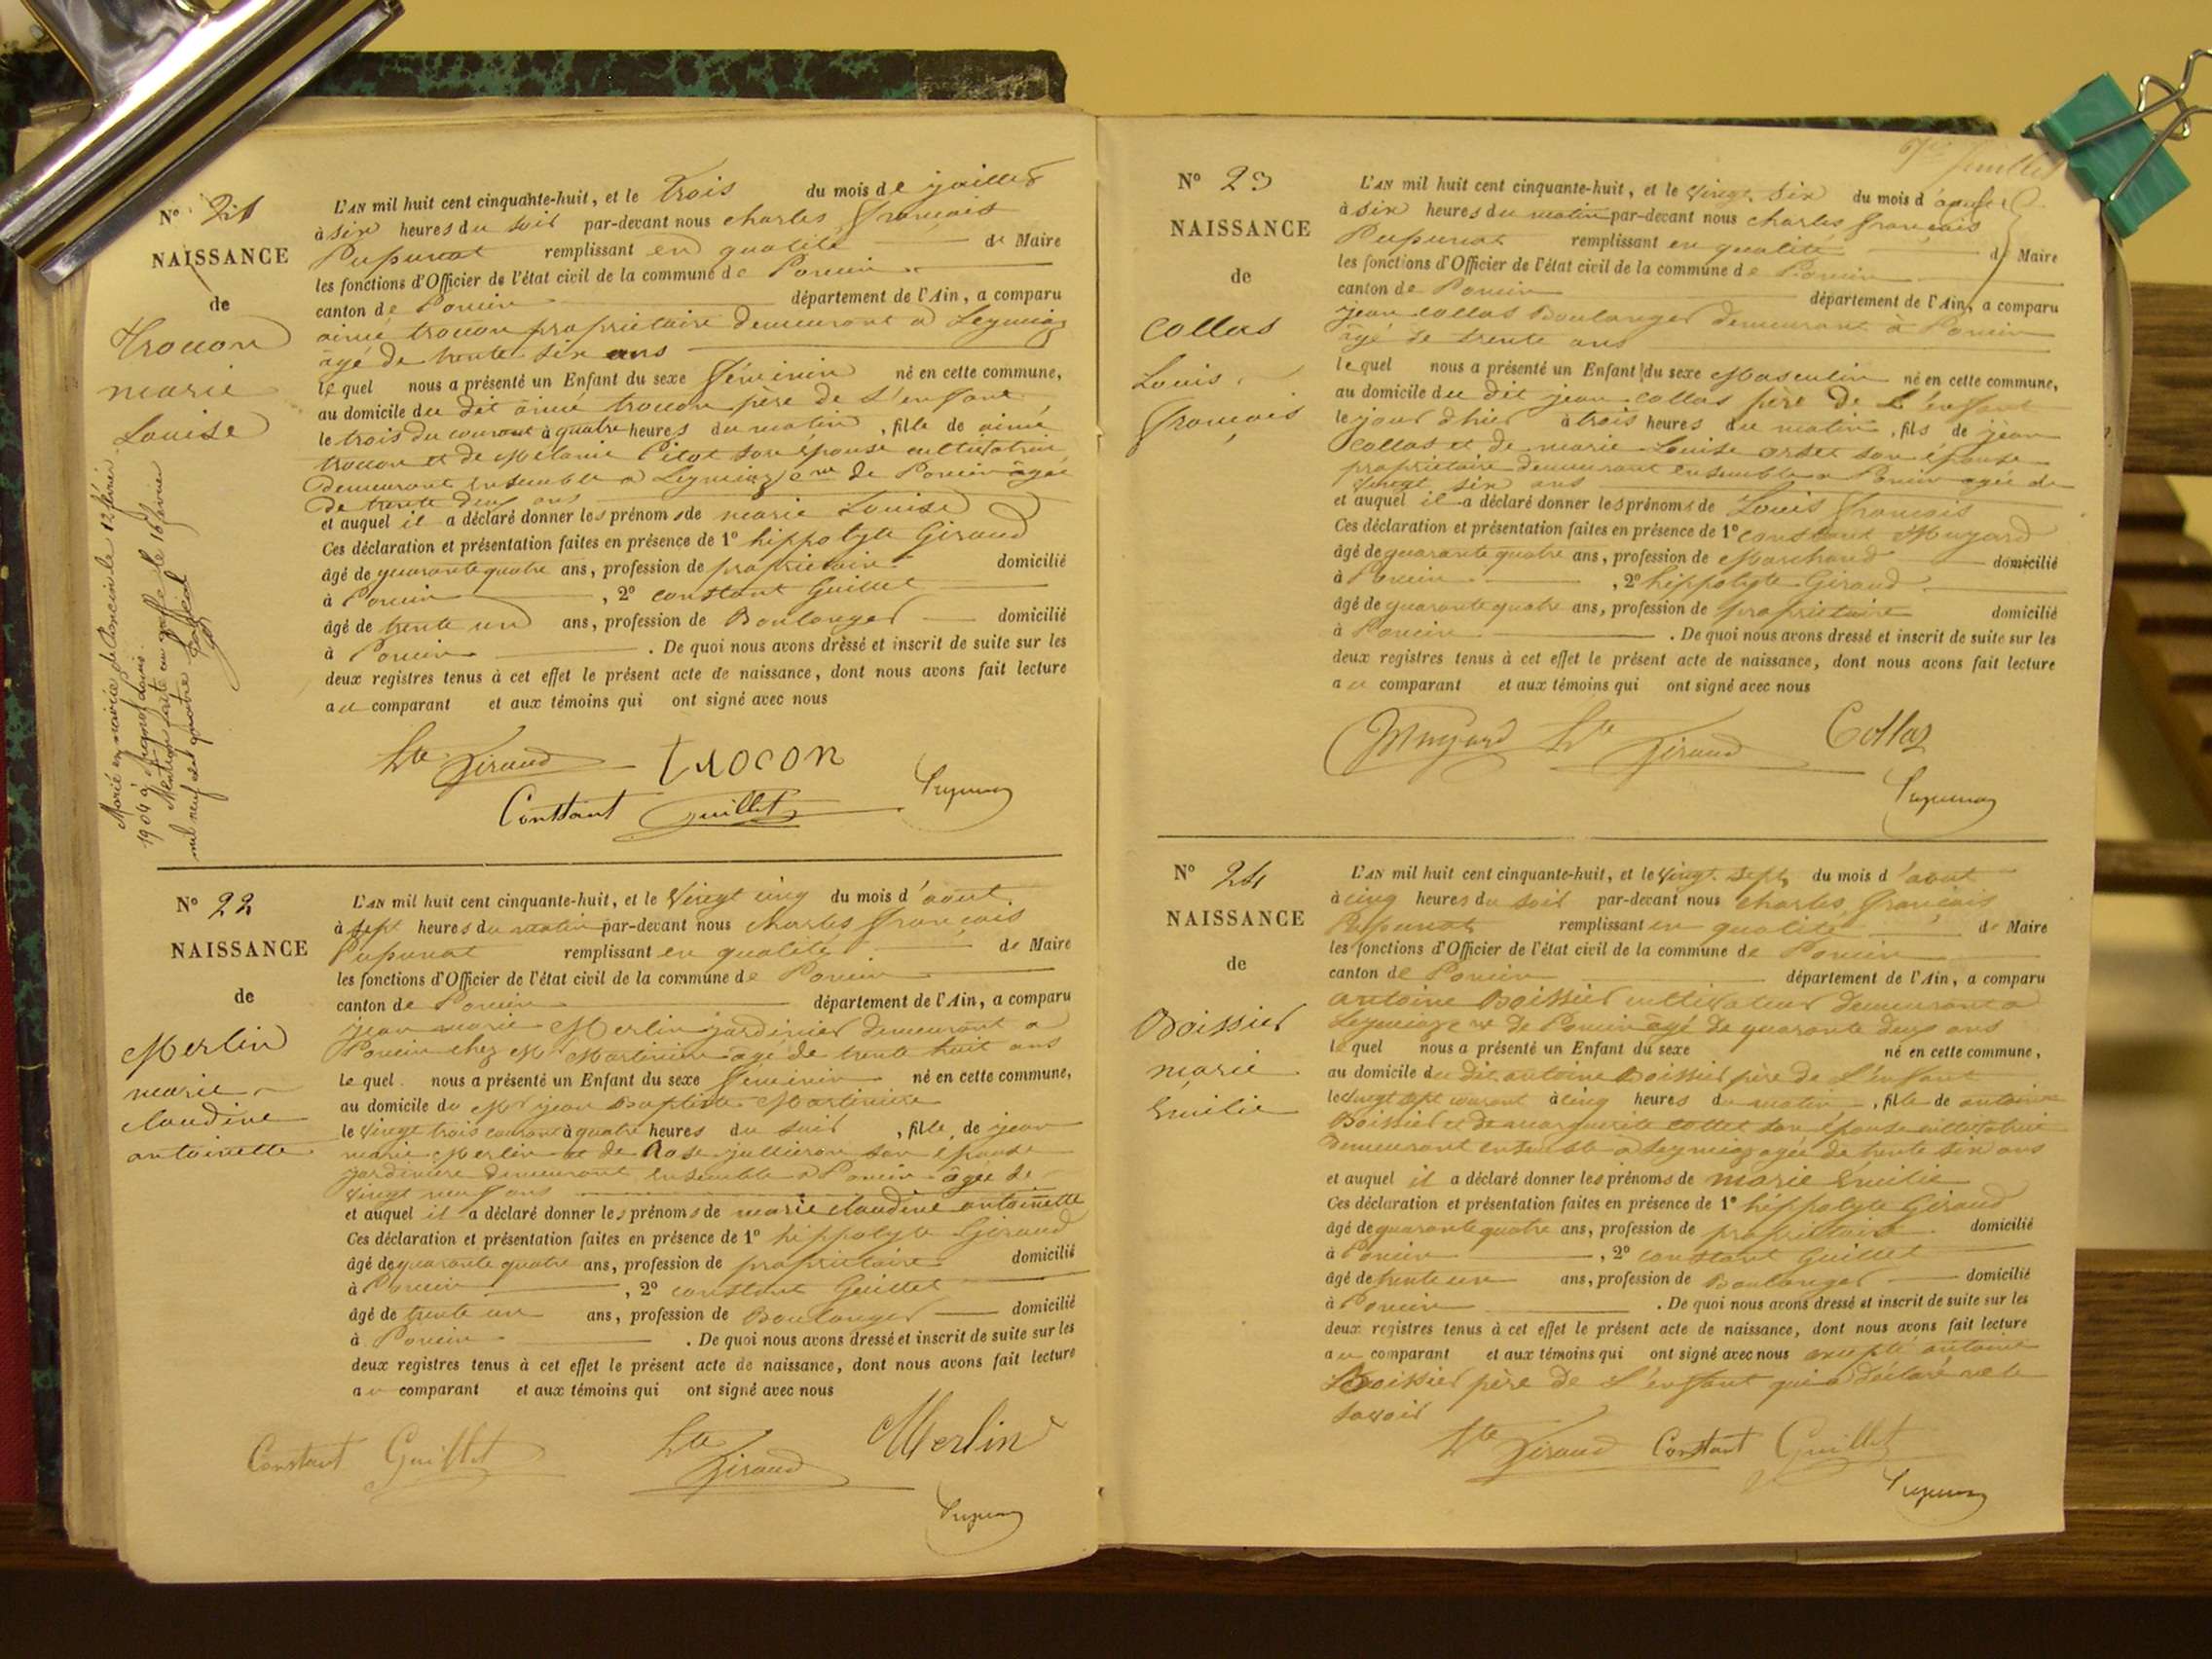 N° 21
NAISSANCE
de
Trocon
marie
Louise
L'AN mil huit cent cinquante-huit, et le trois du mois de juillet
à six heures du soir par-devant nous charles françois
Pupunat remplissant en qualité de Maire
les fonctions d'Officier de l'état civil de la commune de Poncin
canton de Poncin département de l'Ain, a comparu
aimé trocon propriétaire demeurant a Leymiaz
âgé de trente six ans
lequel nous a présenté un Enfant du sexe féminin né en cette commune,
au domicile du dit aimé trocon père de L'enfant
le trois du courant à quatre heures du matin, fille de aimé
trocon et de Mélanie Pitot son épouse cultivatrice
demeurant ensemble a Leymiaz cne de Poncin âgée
de trente deux ans
et auquel il a déclaré donner les prénoms de marie Louise
Ces déclaration et présentation faites en présence de 1° hippolyte Giraud
âgé de quarante quatre ans, profession de propriétaire domicilié
à Poncin, 2° constant Guillet
âgé de trente un ans, profession de Boulanger domicilié
à Poncin. De quoi nous avons dressé et inscrit de suite sur les
deux registres tenus à cet effet le présent acte de naissance, dont nous avons fait lecture
au comparant et aux témoins qui ont signé avec nous
Hte Giraud trocon
Constant Guillet Pupunat
Marié en mairie de Poncin le 12 février
1904 à
Mention faite au greffe le 16 février
mil neuf cent quatre
N° 22
NAISSANCE
de
Merlin
marie
claudine
antoinette
L'AN mil huit cent cinquante-huit, et le vingt cinq du mois d'août
à sept heures du matin par-devant nous charles françois
Pupunat remplissant en qualité de Maire
les fonctions d'Officier de l'état civil de la commune de Poncin
canton de Poncin département de l'Ain, a comparu
jean marie Merlin jardinier demeurant a
Poncin chez Mr Martinière âgé de trente huit ans
lequel nous a présenté un Enfant du sexe féminin né en cette commune,
au domicile de Mr jean Baptiste Martinière
le vingt trois courant à quatre heures du soir, fille de jean
marie Merlin et de Rose jullieron son épouse
jardinière demeurant ensemble a Poncin âgée de
vingt neuf ans
et auquel il a déclaré donner les prénoms de marie claudine antoinette
Ces déclaration et présentation faites en présence de 1° hippolyte Giraud
âgé de quarante quatre ans, profession de propriétaire domicilié
à Poncin, 2° constant Guillet
âgé de trente un ans, profession de Boulanger domicilié
à Poncin. De quoi nous avons dressé et inscrit de suite sur les
deux registres tenus à cet effet le présent acte de naissance, dont nous avons fait lecture
au comparant et aux témoins qui ont signé avec nous
Constant Guillet Hte Giraud Merlin
Pupunat
N° 23
NAISSANCE
de
Collas
Louis
françois
L'AN mil huit cent cinquante-huit, et le vingt six du mois d'août
à six heures du matin par-devant nous charles françois
Pupunat remplissant en qualité de Maire
les fonctions d'Officier de l'état civil de la commune de Poncin
canton de Poncin département de l'Ain, a comparu
jean collas Boulanger demeurant à Poncin
âgé de trente ans
lequel nous a présenté un Enfant du sexe Masculin né en cette commune,
au domicile du dit jean collas père de L'enfant
le jour d'hier à trois heures du matin, fils de jean
collas et de marie Louise orset son épouse
propriétaire demeurant ensemble a Poncin agée de
vingt six ans
et auquel il a déclaré donner les prénoms de Louis françois
Ces déclaration et présentation faites en présence de 1° constant Muyard
âgé de quarante quatre ans, profession de Marchand domicilié
à Poncin, 2° hippolyte Giraud
âgé de quarante quatre ans, profession de propriétaire domicilié
à Poncin. De quoi nous avons dressé et inscrit de suite sur les
deux registres tenus à cet effet le présent acte de naissance, dont nous avons fait lecture
au comparant et aux témoins qui ont signé avec nous
Muyard Hte Giraud Collas
Pupunat
N° 24
NAISSANCE
de
Boissier
marie
Emilie
L'AN mil huit cent cinquante-huit, et le vingt sept du mois d'août
à cinq heures du soir par-devant nous charles françois
Pupunat remplissant en qualité de Maire
les fonctions d'Officier de l'état civil de la commune de Poncin
canton de Poncin département de l'Ain, a comparu
antoine Boissier cultivateur demeurant a
Leymiaz cne de Poncin âgé de quarante deux ans
lequel nous a présenté un Enfant du sexe né en cette commune,
au domicile du dit antoine Boissier père de L'enfant
le vingt sept courant à cinq heures du matin, fille de antoine
Boissier et de marguerite cottet son épouse cultivatrice
demeurant ensemble a Leymiaz agée de trente six ans
et auquel il a déclaré donner les prénoms de marie Emilie
Ces déclaration et présentation faites en présence de 1° hippolyte Giraud
âgé de quarante quatre ans, profession de propriétaire domicilié
à Poncin, 2° constant Guillet
âgé de trente un ans, profession de Boulanger domicilié
à Poncin. De quoi nous avons dressé et inscrit de suite sur les
deux registres tenus à cet effet le présent acte de naissance, dont nous avons fait lecture
au comparant et aux témoins qui ont signé avec nous excepté antoine
Boissier père de L'enfant qui a déclaré ne le
savoir
Hte Giraud Constant Guillet
Pupunat